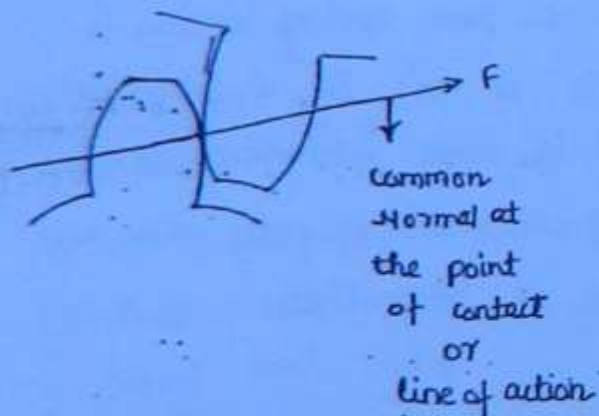 F
common
Normal at
the point
of contact
or
line of action